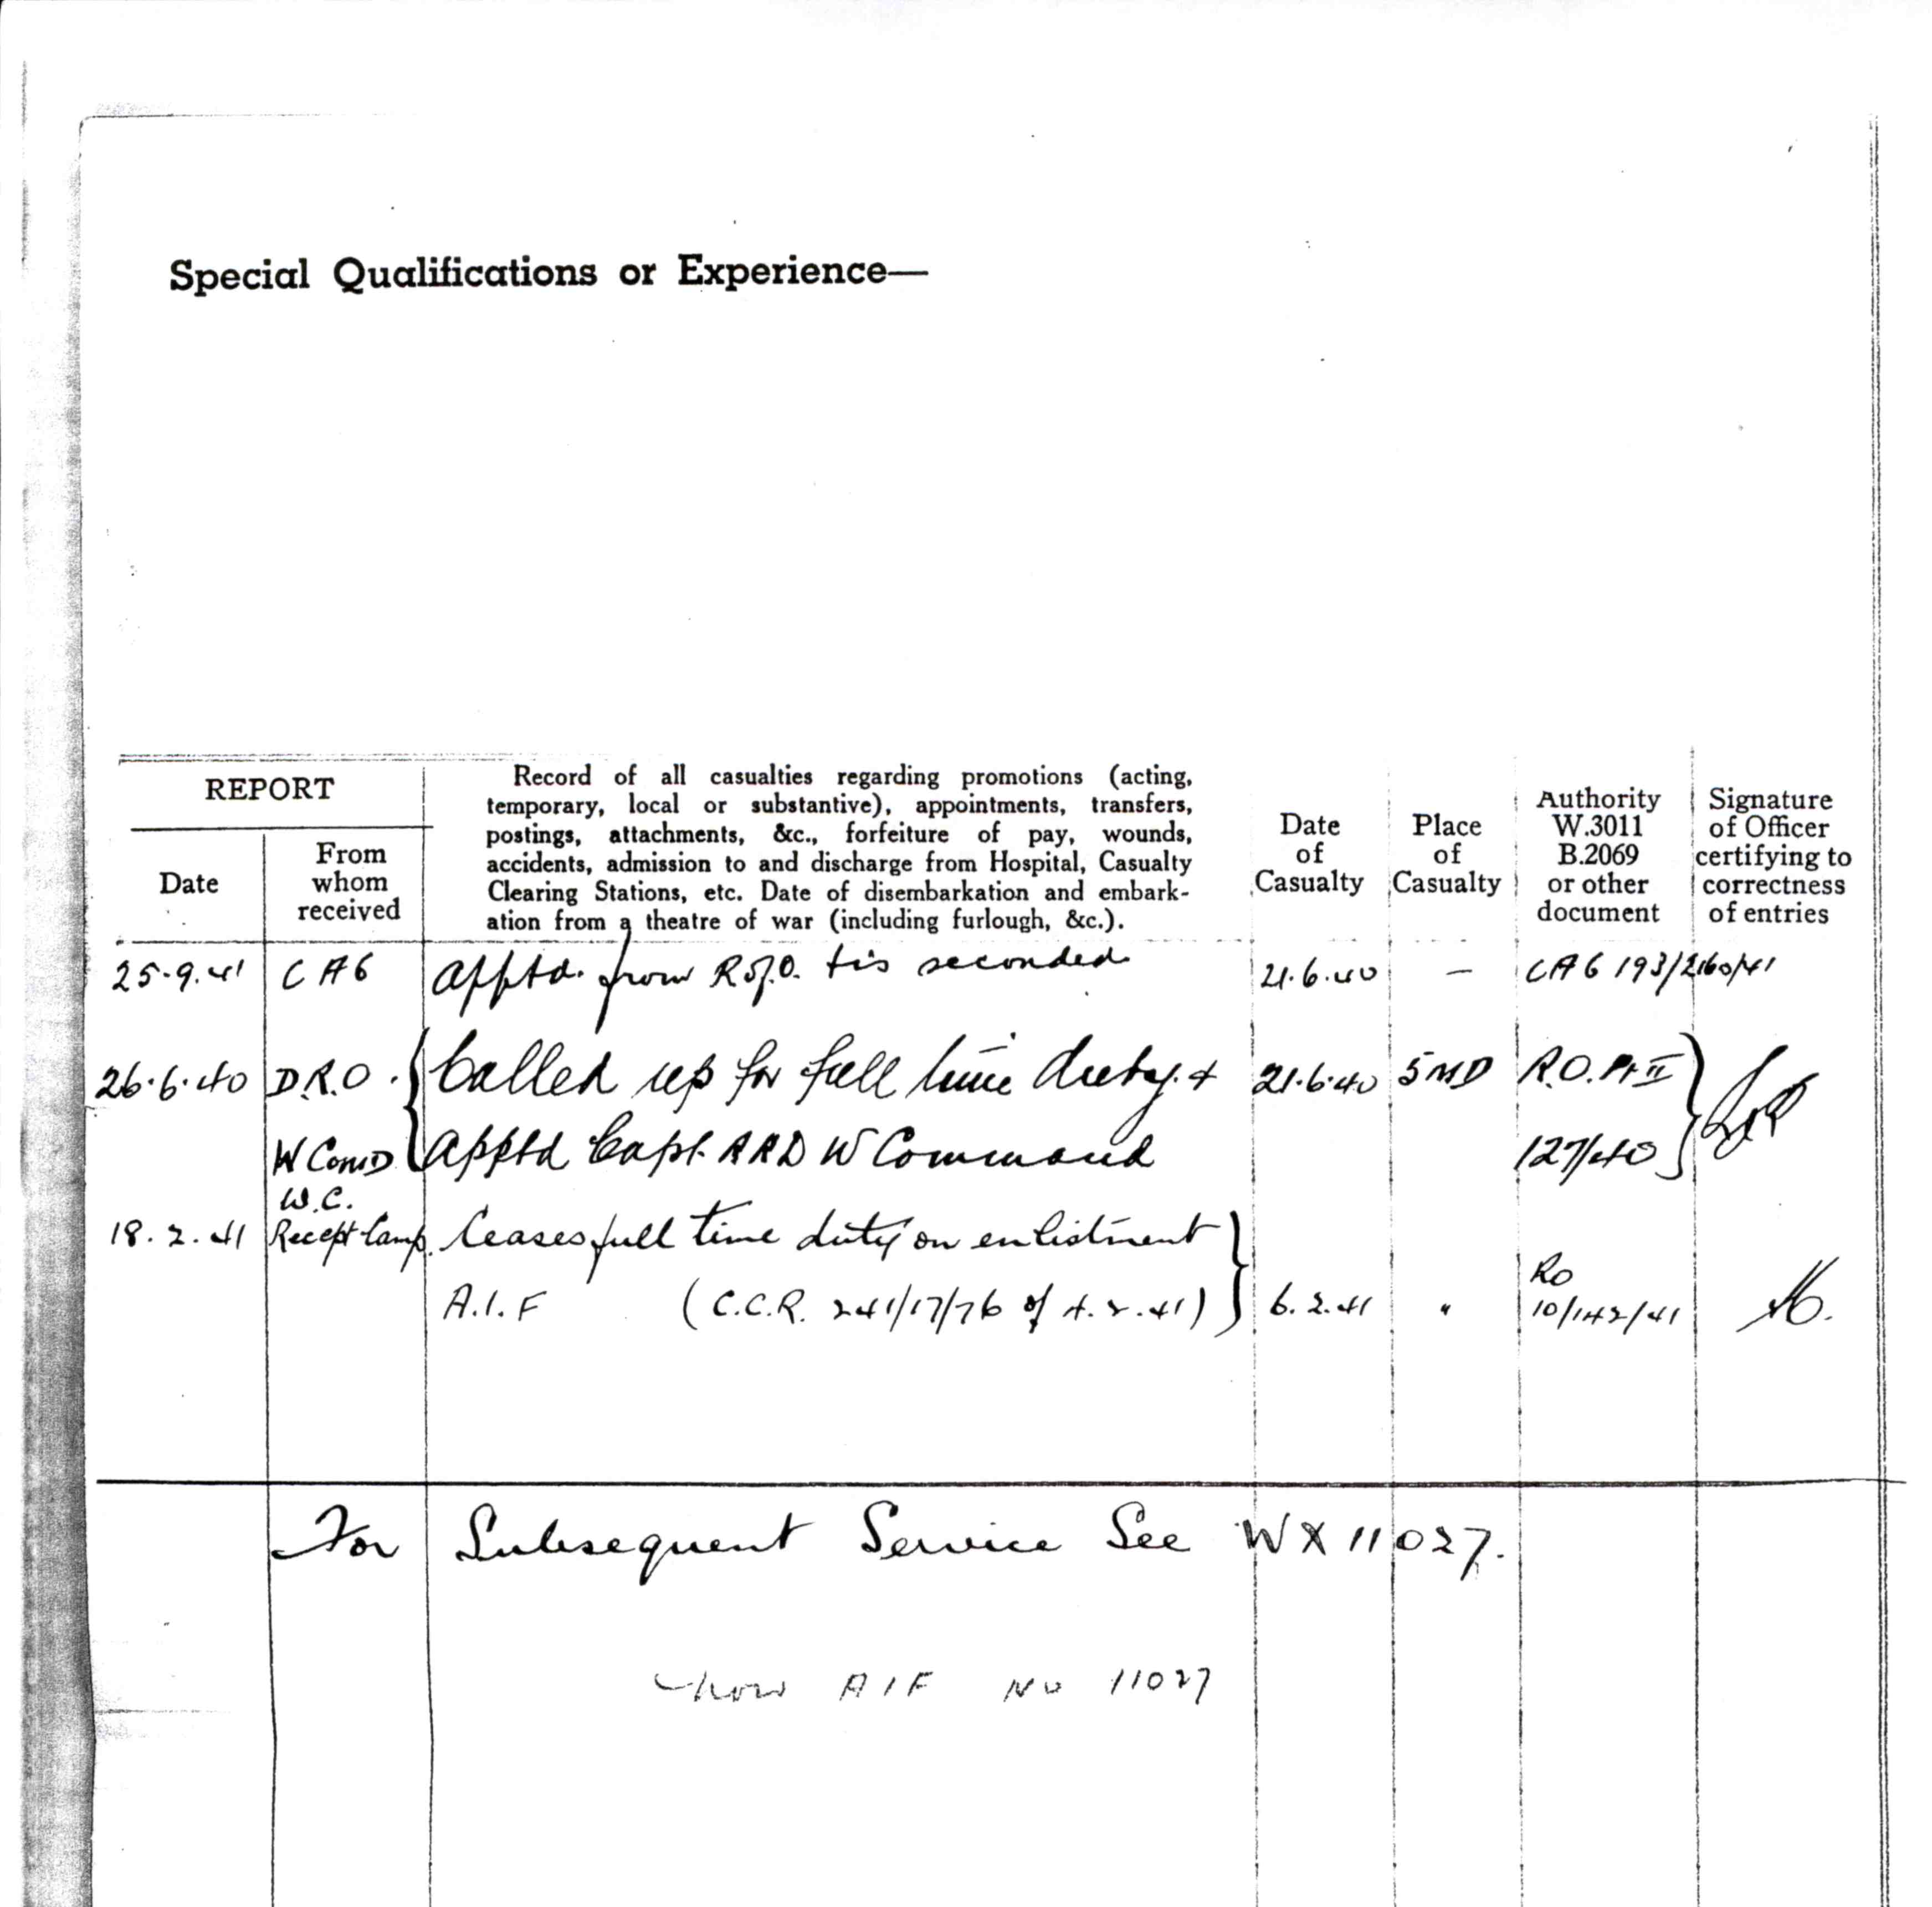 Special Qualifications or Experience—
REPORT
Date
From
whom
received
Record of all casualties regarding promotions (acting,
temporary, local or substantive), appointments, transfers,
postings, attachments, &c., forfeiture of pay, wounds,
accidents, admission to and discharge from Hospital, Casualty
Clearing Stations, etc. Date of disembarkation and embark-
ation from a theatre of war (including furlough, &c.).
Date
of
Casualty
Place
of
Casualty
Authority
W.3011
B.2069
or other
document
Signature
of Officer
certifying to
correctness
of entries
25.9.41 CAG apptd. from R of O. & is seconded 21.6.40 — CAG 193/2160/41
26.6.40 D.R.O. Called up for full time duty & 21.6.40 5 MD R.O. Pt II
W ComD apptd Capt. ARD W Command 127/40
W.C.
18.2.41 Recept Camp. Ceases full time duty on enlistment
A.I.F (C.C.R. 241/17/76 of 4.2.41) 6.2.41 " RO
10/142/41
For Subsequent Service See WX 11027.
now AIF No 11027